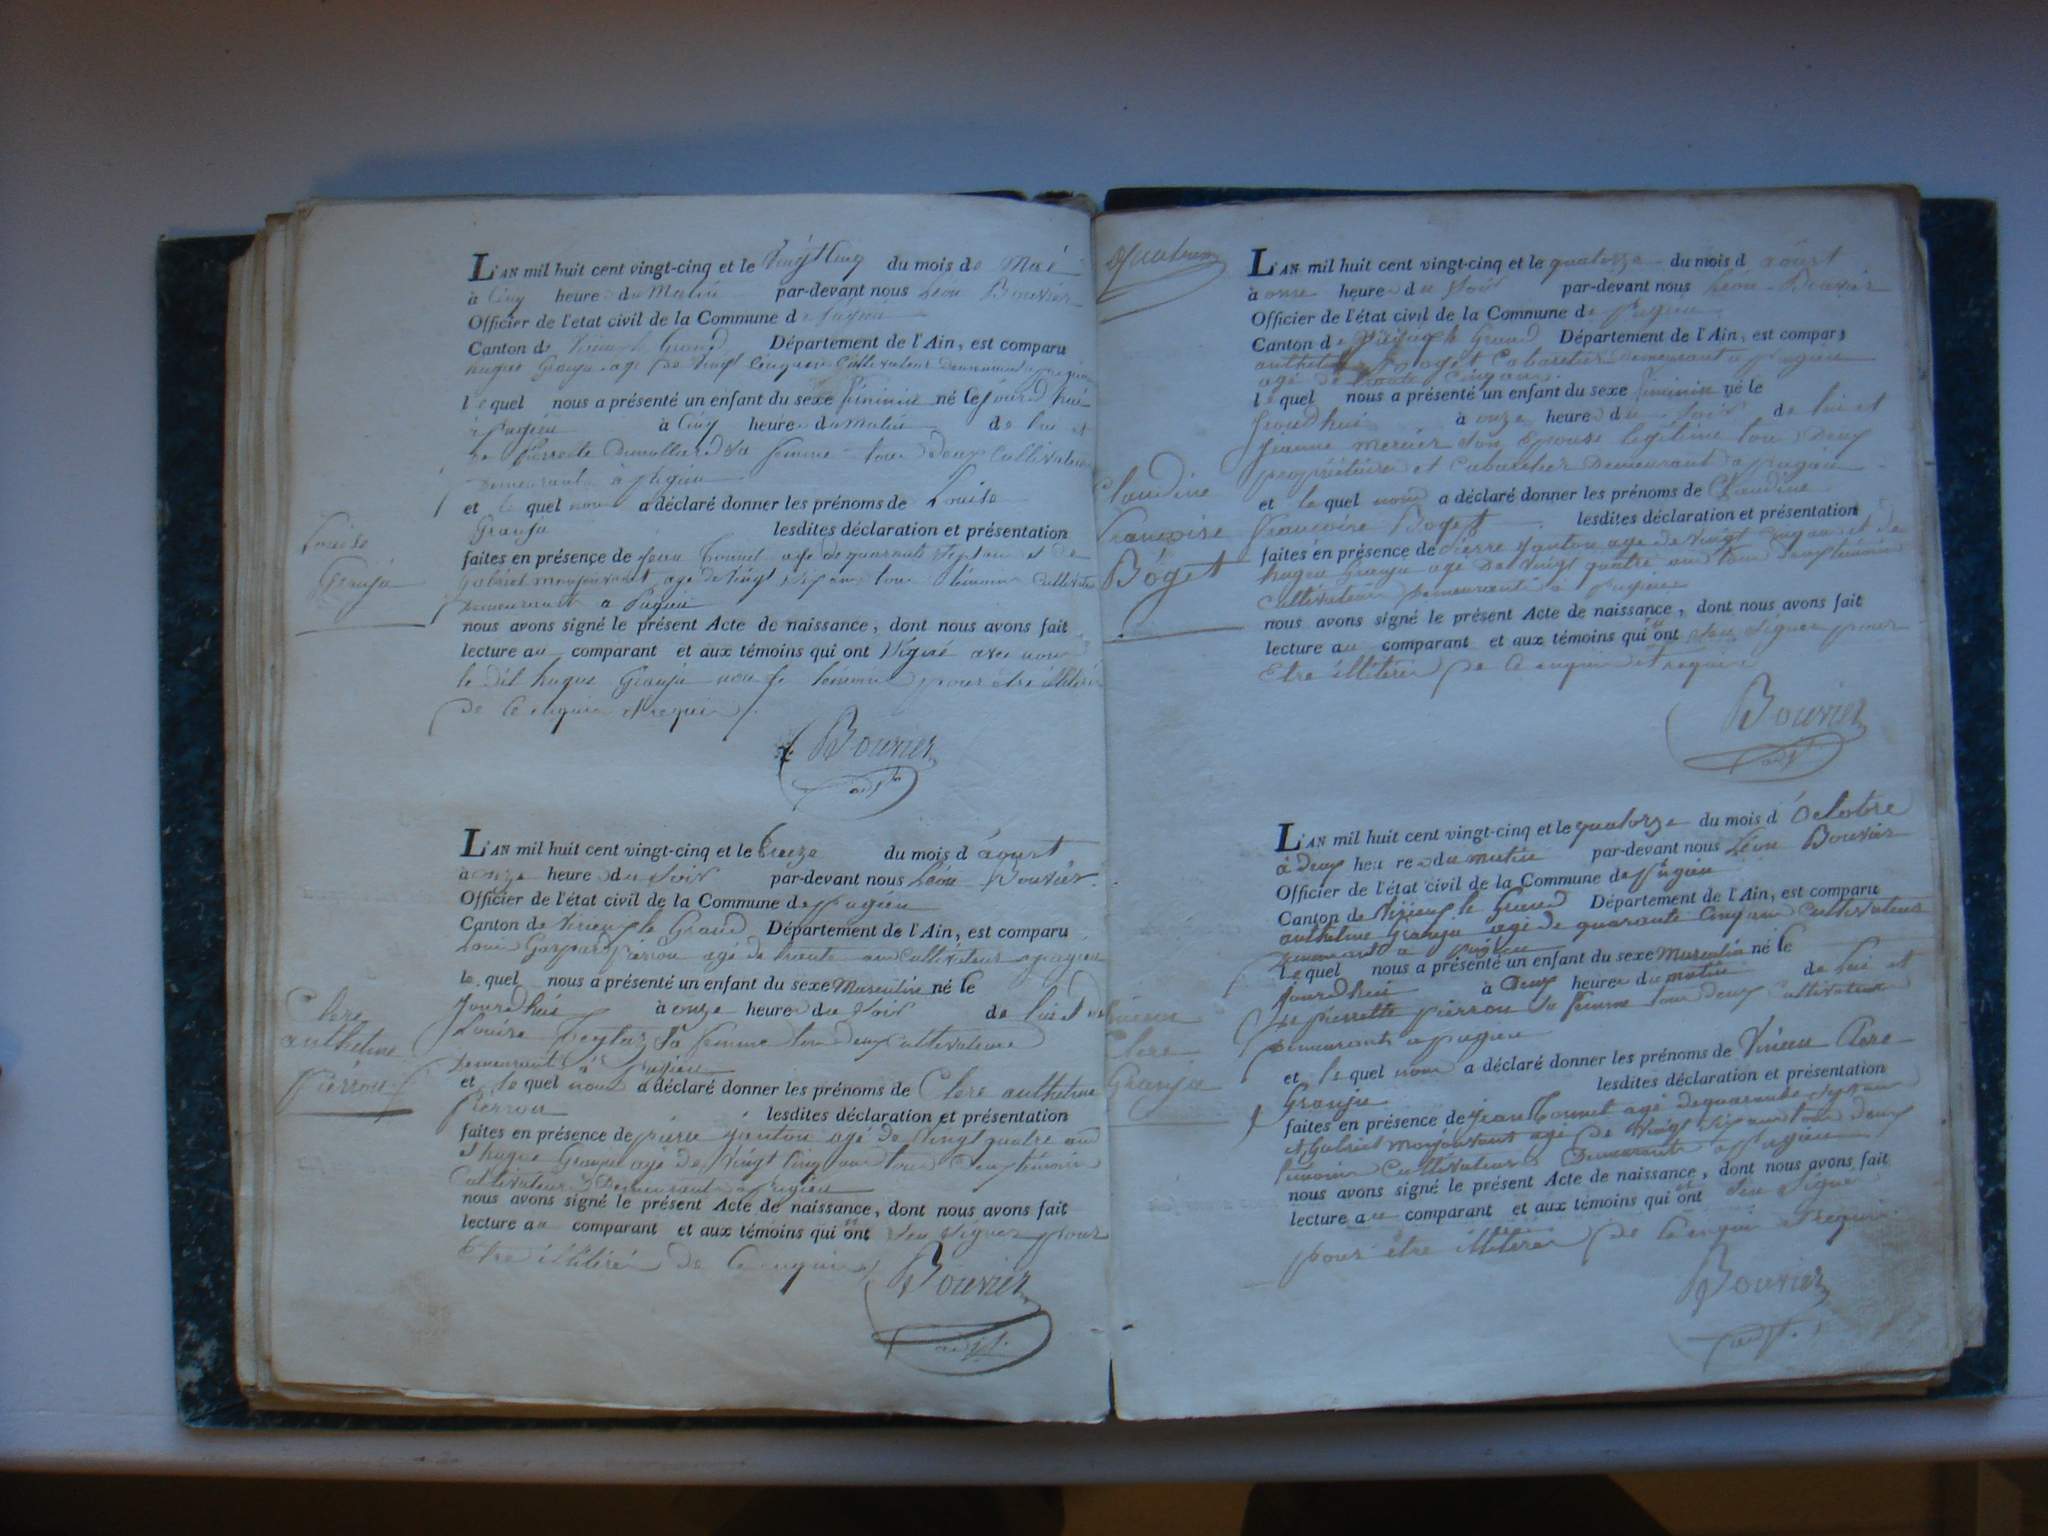 L'AN mil huit cent vingt-cinq et le Vingt Cinq du mois de Mai
à Cinq heure du Matin par-devant nous Léon Bouvier
Officier de l'etat civil de la Commune de
Canton de Grand Département de l'Ain, est comparu
hugue Granju agé de Vingt Cultivateur Demeurant
le quel nous a présenté un enfant du sexe féminin né le jourd hui
à pugieu à Cinq heure du Matin de lui et
de pierrette sa femme tous Deux Cultivateur
Demeurants à pugieu
et le quel nous a déclaré donner les prénoms de Louise
Granju lesdites déclaration et présentation
faites en présence de Jean agé de quarante Sept ans et de
Gabriel agé de Vingt ans tous témoins Cultivateur
Demeurants a Pugieu
nous avons signé le présent Acte de naissance, dont nous avons fait
lecture au comparant et aux témoins qui ont Signé avec nous
le Dit hugue Granju non pour etre illitéré
de Ce enquis et requis
Bouvier
Louise
Granju
L'AN mil huit cent vingt-cinq et le treize du mois d aoust
à onze heure du Soir par-devant nous Léon Bouvier
Officier de l'état civil de la Commune de pugieu
Canton de Virieu le Grand Département de l'Ain, est comparu
Louis Gaspard pierrou agé de trente ans Cultivateur a pugieu
le quel nous a présenté un enfant du sexe Masculin né le
Jourdhui à onze heure du Soir de lui et de
Louise Sa femme tous deux Cultivateurs
Demeurant à pugieu
et le quel nous a déclaré donner les prénoms de Clere anthelme
Pierrou lesdites déclaration et présentation
faites en présence de pierre Janton agé de Vingt quatre ans
et hugue Granju agé de Vingt Cinq ans tous Deux témoins
Cultivateurs Demeurants a pugieu
nous avons signé le présent Acte de naissance, dont nous avons fait
lecture au comparant et aux témoins qui n'ont Seu Signer pour
Etre illitéré de Ce enquis
Bouvier
Clere
anthelme
Pierrou
L'AN mil huit cent vingt-cinq et le quatorze du mois d aoust
à onse heure du Soir par-devant nous Léon Bouvier
Officier de l'état civil de la Commune de pugieu
Canton de Grand Département de l'Ain, est comparu
anthelme Boget Cabaretier Demeurant a pugieu
agé de trente Cinq ans
le quel nous a présenté un enfant du sexe feminin né le
Jourdhui à onze heure du Soir de lui et
Jeanne mercier Son Epouse legitime tous Deux
propriétaire et Cabaretier Demeurant a pugieu
et le quel nous a déclaré donner les prénoms de Claudine
Françoise Boget lesdites déclaration et présentation
faites en présence de Pierre Janton agé de Vingt ans et de
hugue Granju agé De Vingt quatre ans tous Deux témoins
Cultivateurs Demeurants à pugieu
nous avons signé le présent Acte de naissance, dont nous avons fait
lecture au comparant et aux témoins qui n'ont Seu Signer pour
Etre illitéré de Ce enquis et requis
Bouvier
Claudine
Françoise
Boget
L'AN mil huit cent vingt-cinq et le quatorze du mois d Octobre
à Deux heure du matin par-devant nous Léon Bouvier
Officier de l'état civil de la Commune de Pugieu
Canton de Virieux le Grand Département de l'Ain, est comparu
anthelme Granju agé de quarante Cinq ans Cultivateur
Demeurant a pugieu
le quel nous a présenté un enfant du sexe Masculin né le
Jourdhui à Deux heure du matin de Lui et
de pierrette pierrou Sa femme tous deux Cultivateurs
Demeurants a pugieu
et le quel nous a déclaré donner les prénoms de Clere
Granju lesdites déclaration et présentation
faites en présence de Jean agé de quarante Sept ans
et Gabriel agé De Vingt ans tous deux
témoins Cultivateurs Demeurants a Pugieu
nous avons signé le présent Acte de naissance, dont nous avons fait
lecture au comparant et aux témoins qui n'ont Seu Signer
pour être illitéré de Ce enquis et requis
Bouvier
Clere
Granju